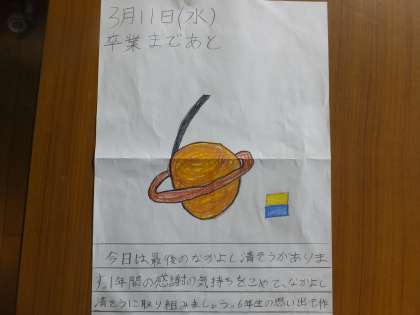 3月11日(水)
卒業まであと
6
今日は最後のなかよし清そうがありま
す。1年間の感謝の気持ちをこめて、なかよし
清そうに取り組みましょう。6年生の思い出て作